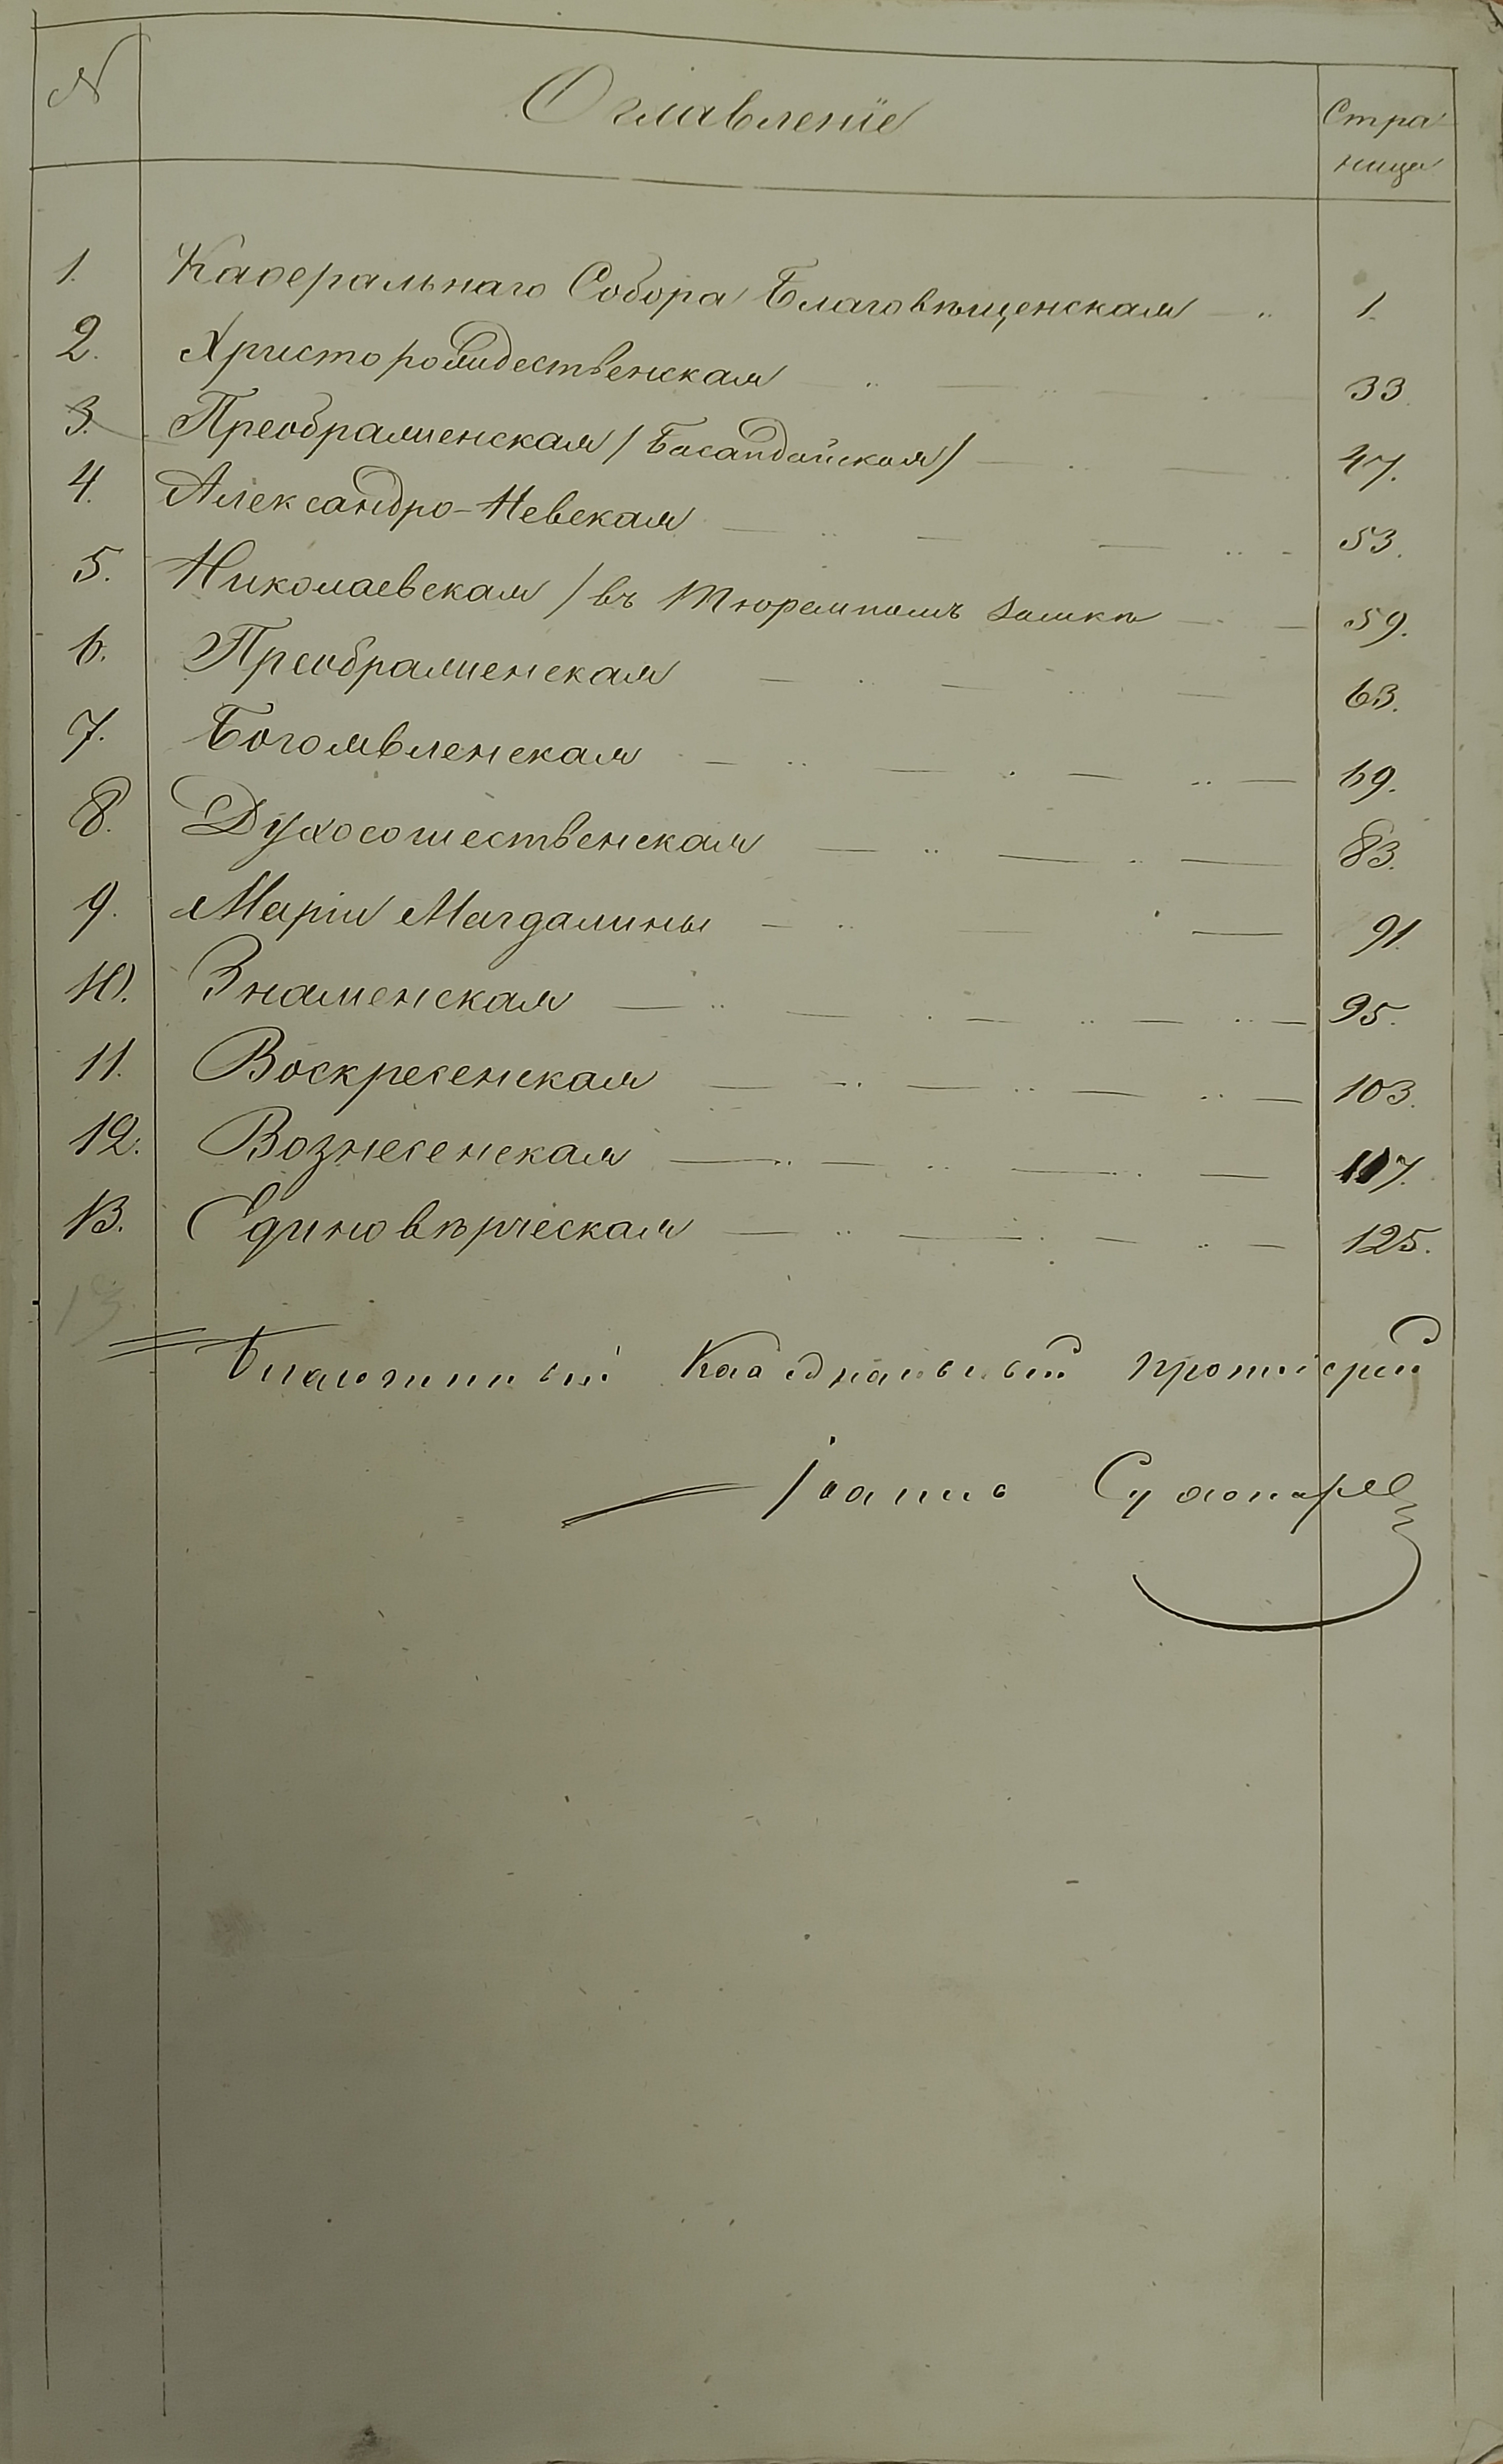 № Оглавленіе Стра
ница
1. Каѳеральнаго Собора Благовѣщенская 1.
2. Христорождественская 33.
3. Преображенская / Басандайская / 47.
4. Александро-Невская 53.
5. Николаевская / въ Тюремномъ Замкѣ 59.
6. Преображенская 63.
7. Богоявленская 69.
8. Духосошественская 83.
9. Маріи Магдалины 91.
10. Знаменская 95.
11. Воскресенская 103.
12. Вознесенская 117.
13. Единовѣрческая 125.
13.
Благочинный Каѳедральный Протоіерей
Іоаннъ